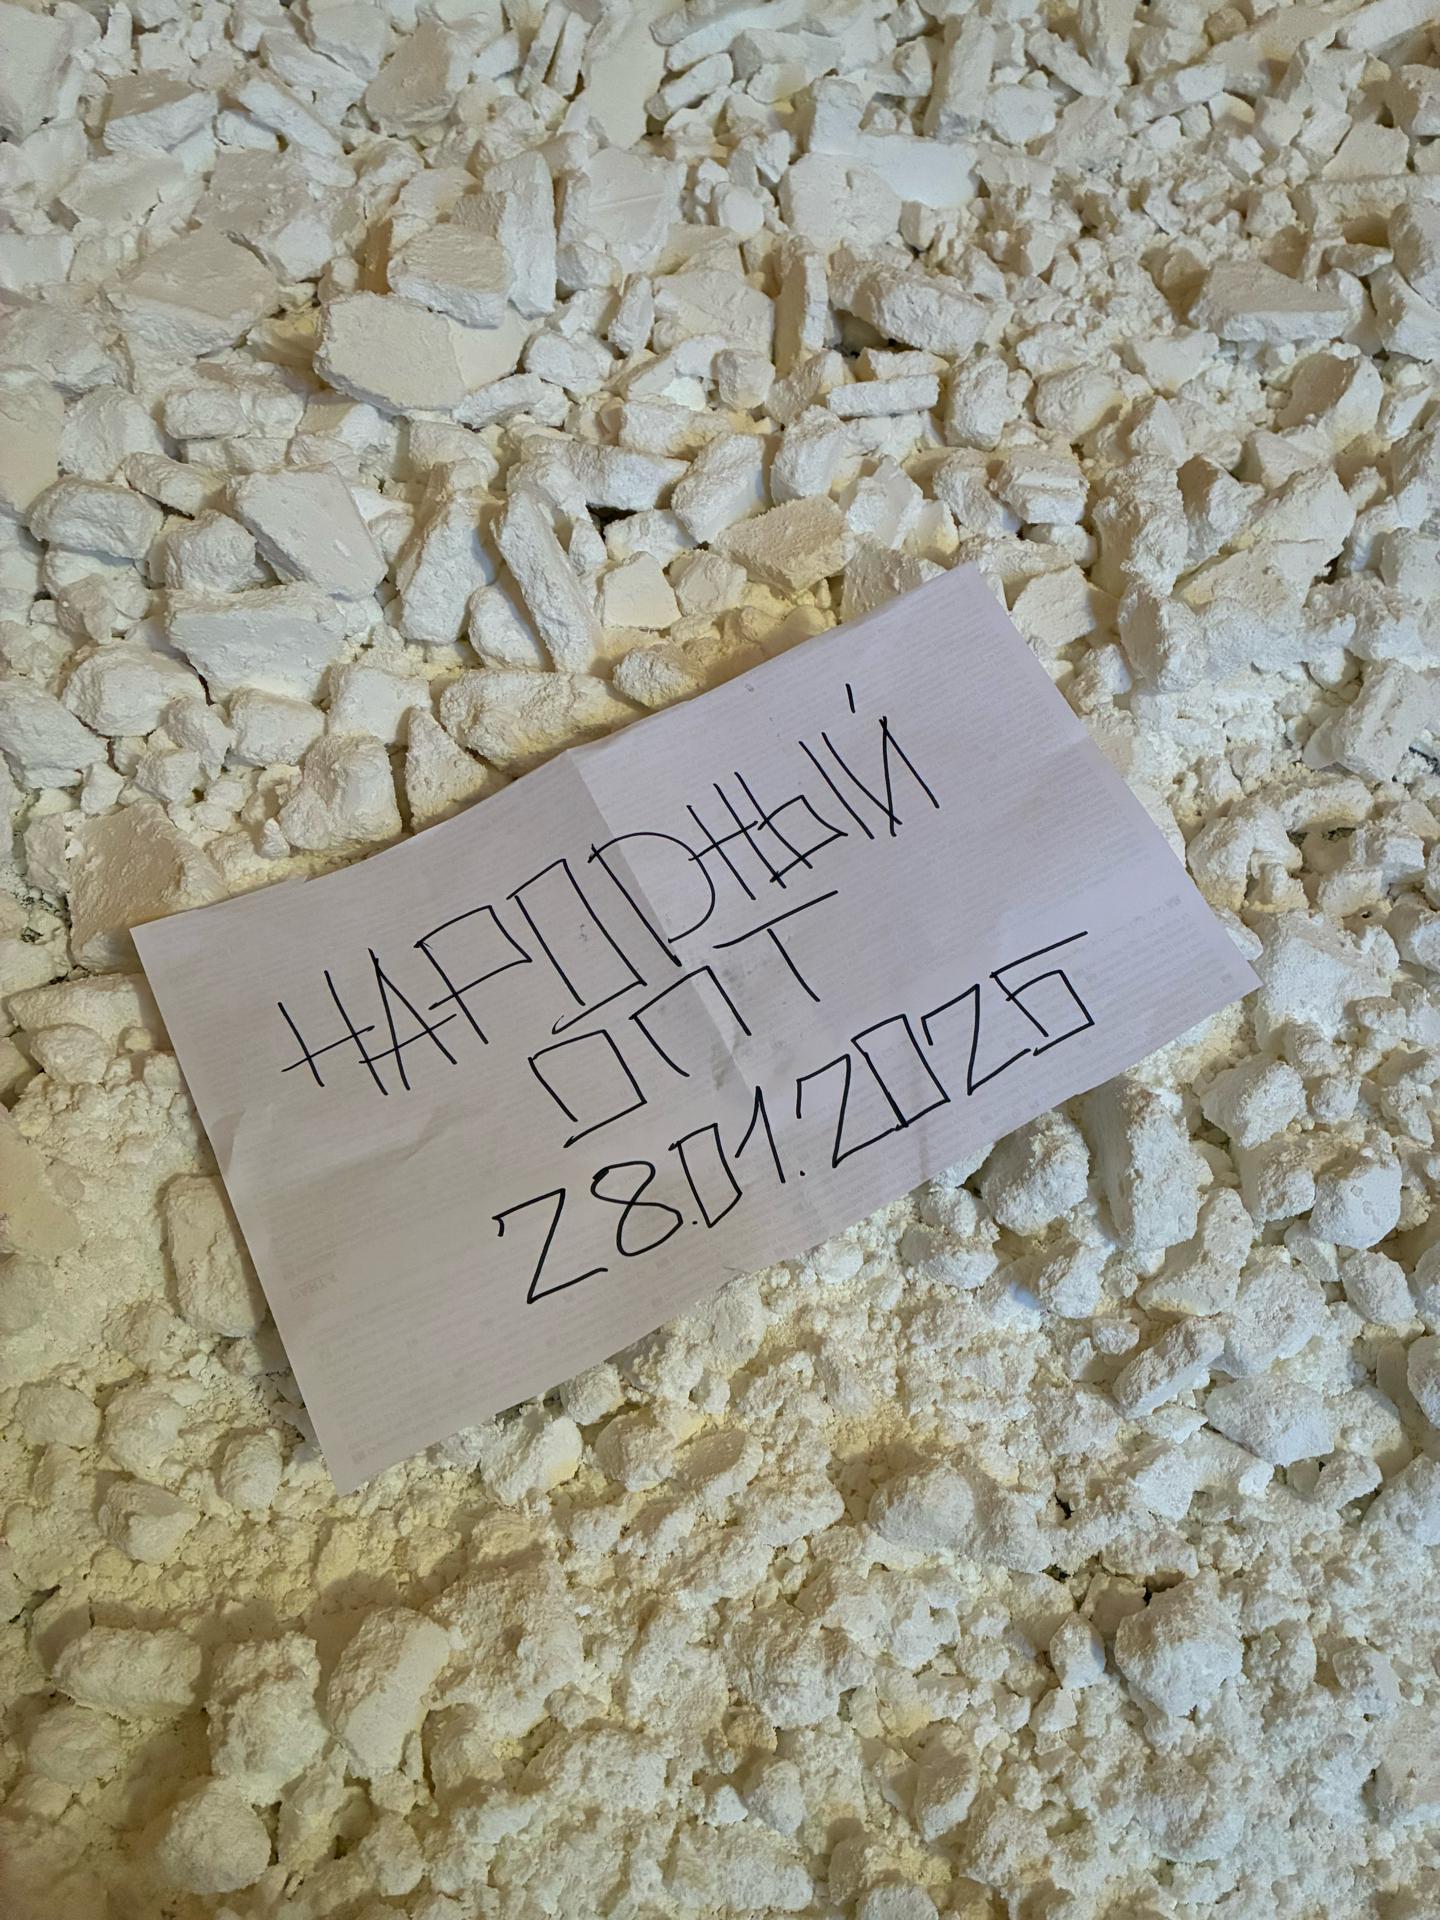 НАРОДНЫЙ
ОПТ
28.01.2025